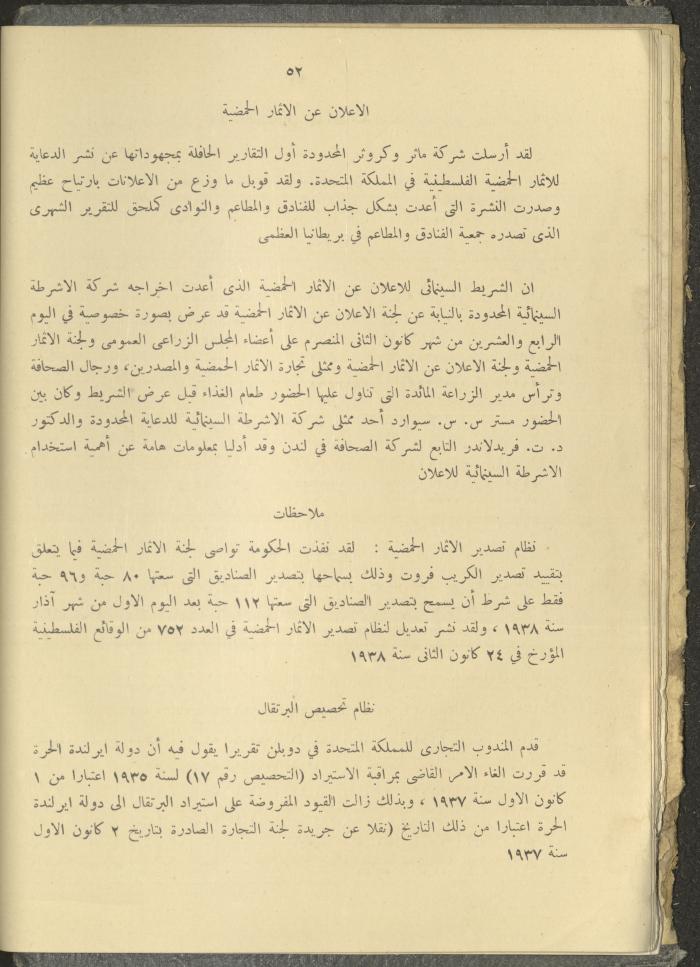 ٥٢
الاعلان عن الاثمار الحمضية
لقد أرسلت شركة ماثر وكروثر المحدودة أول التقارير الحافلة بمجهوداتها عن نشر الدعاية
للاثمار الحمضية الفلسطينية في المملكة المتحدة. ولقد قوبل ما وزع من الاعلانات بارتياح عظيم
وصدرت النشرة التى أعدت بشكل جذاب للفنادق والمطاعم والنوادى كملحق للتقرير الشهرى
الذى تصدره جمعية الفنادق والمطاعم في بريطانيا العظمى
ان الشريط السينمائى للاعلان عن الاثمار الحمضية الذى أعدت اخراجه شركة الاشرطة
السينمائية المحدودة بالنيابة عن لجنة الاعلان عن الاثمار الحمضية قد عرض بصورة خصوصية في اليوم
الرابع والعشرين من شهر كانون الثانى المنصرم على أعضاء المجلس الزراعى العمومى ولجنة الاثمار
الحمضية ولجنة الاعلان عن الاثمار الحمضية وممثلى تجارة الاثمار الحمضية والمصدرين، ورجال الصحافة
وترأس مدير الزراعة المائدة التى تناول عليها الحضور طعام الغذاء قبل عرض الشريط وكان بين
الحضور مستر س. س. سيوارد أحد ممثلى شركة الاشرطة السينمائية للدعاية المحدودة والدكتور
د. ت. فريدلاندر التابع لشركة الصحافة في لندن وقد أدليا بمعلومات هامة عن أهمية استخدام
الاشرطة السينمائية للاعلان
ملاحظات
نظام تصدير الاثمار الحمضية : لقد نفذت الحكومة تواصى لجنة الاثمار الحمضية فيما يتعلق
بتقييد تصدير الكريب فروت وذلك بسماحها بتصدير الصناديق التى سعتها ٨٠ حبة و٩٦ حبة
فقط على شرط أن يسمح بتصدير الصناديق التى سعتها ١١٢ حبة بعد اليوم الاول من شهر آذار
سنة ١٩٣٨ ، ولقد نشر تعديل لنظام تصدير الاثمار الحمضية في العدد ٧٥٢ من الوقائع الفلسطينية
المؤرخ في ٢٤ كانون الثانى سنة ١٩٣٨
نظام تخصيص البرتقال
قدم المندوب التجارى للمملكة المتحدة في دوبلن تقريرا يقول فيه أن دولة ايرلندة الحرة
قد قررت الغاء الامر القاضى بمراقبة الاستيراد (التخصيص رقم ١٧) لسنة ١٩٣٥ اعتبارا من ١
كانون الاول سنة ١٩٣٧ ، وبذلك زالت القيود المفروضة على استيراد البرتقال الى دولة ايرلندة
الحرة اعتبارا من ذلك التاريخ (نقلا عن جريدة لجنة التجارة الصادرة بتاريخ ٢ كانون الاول
سنة ١٩٣٧